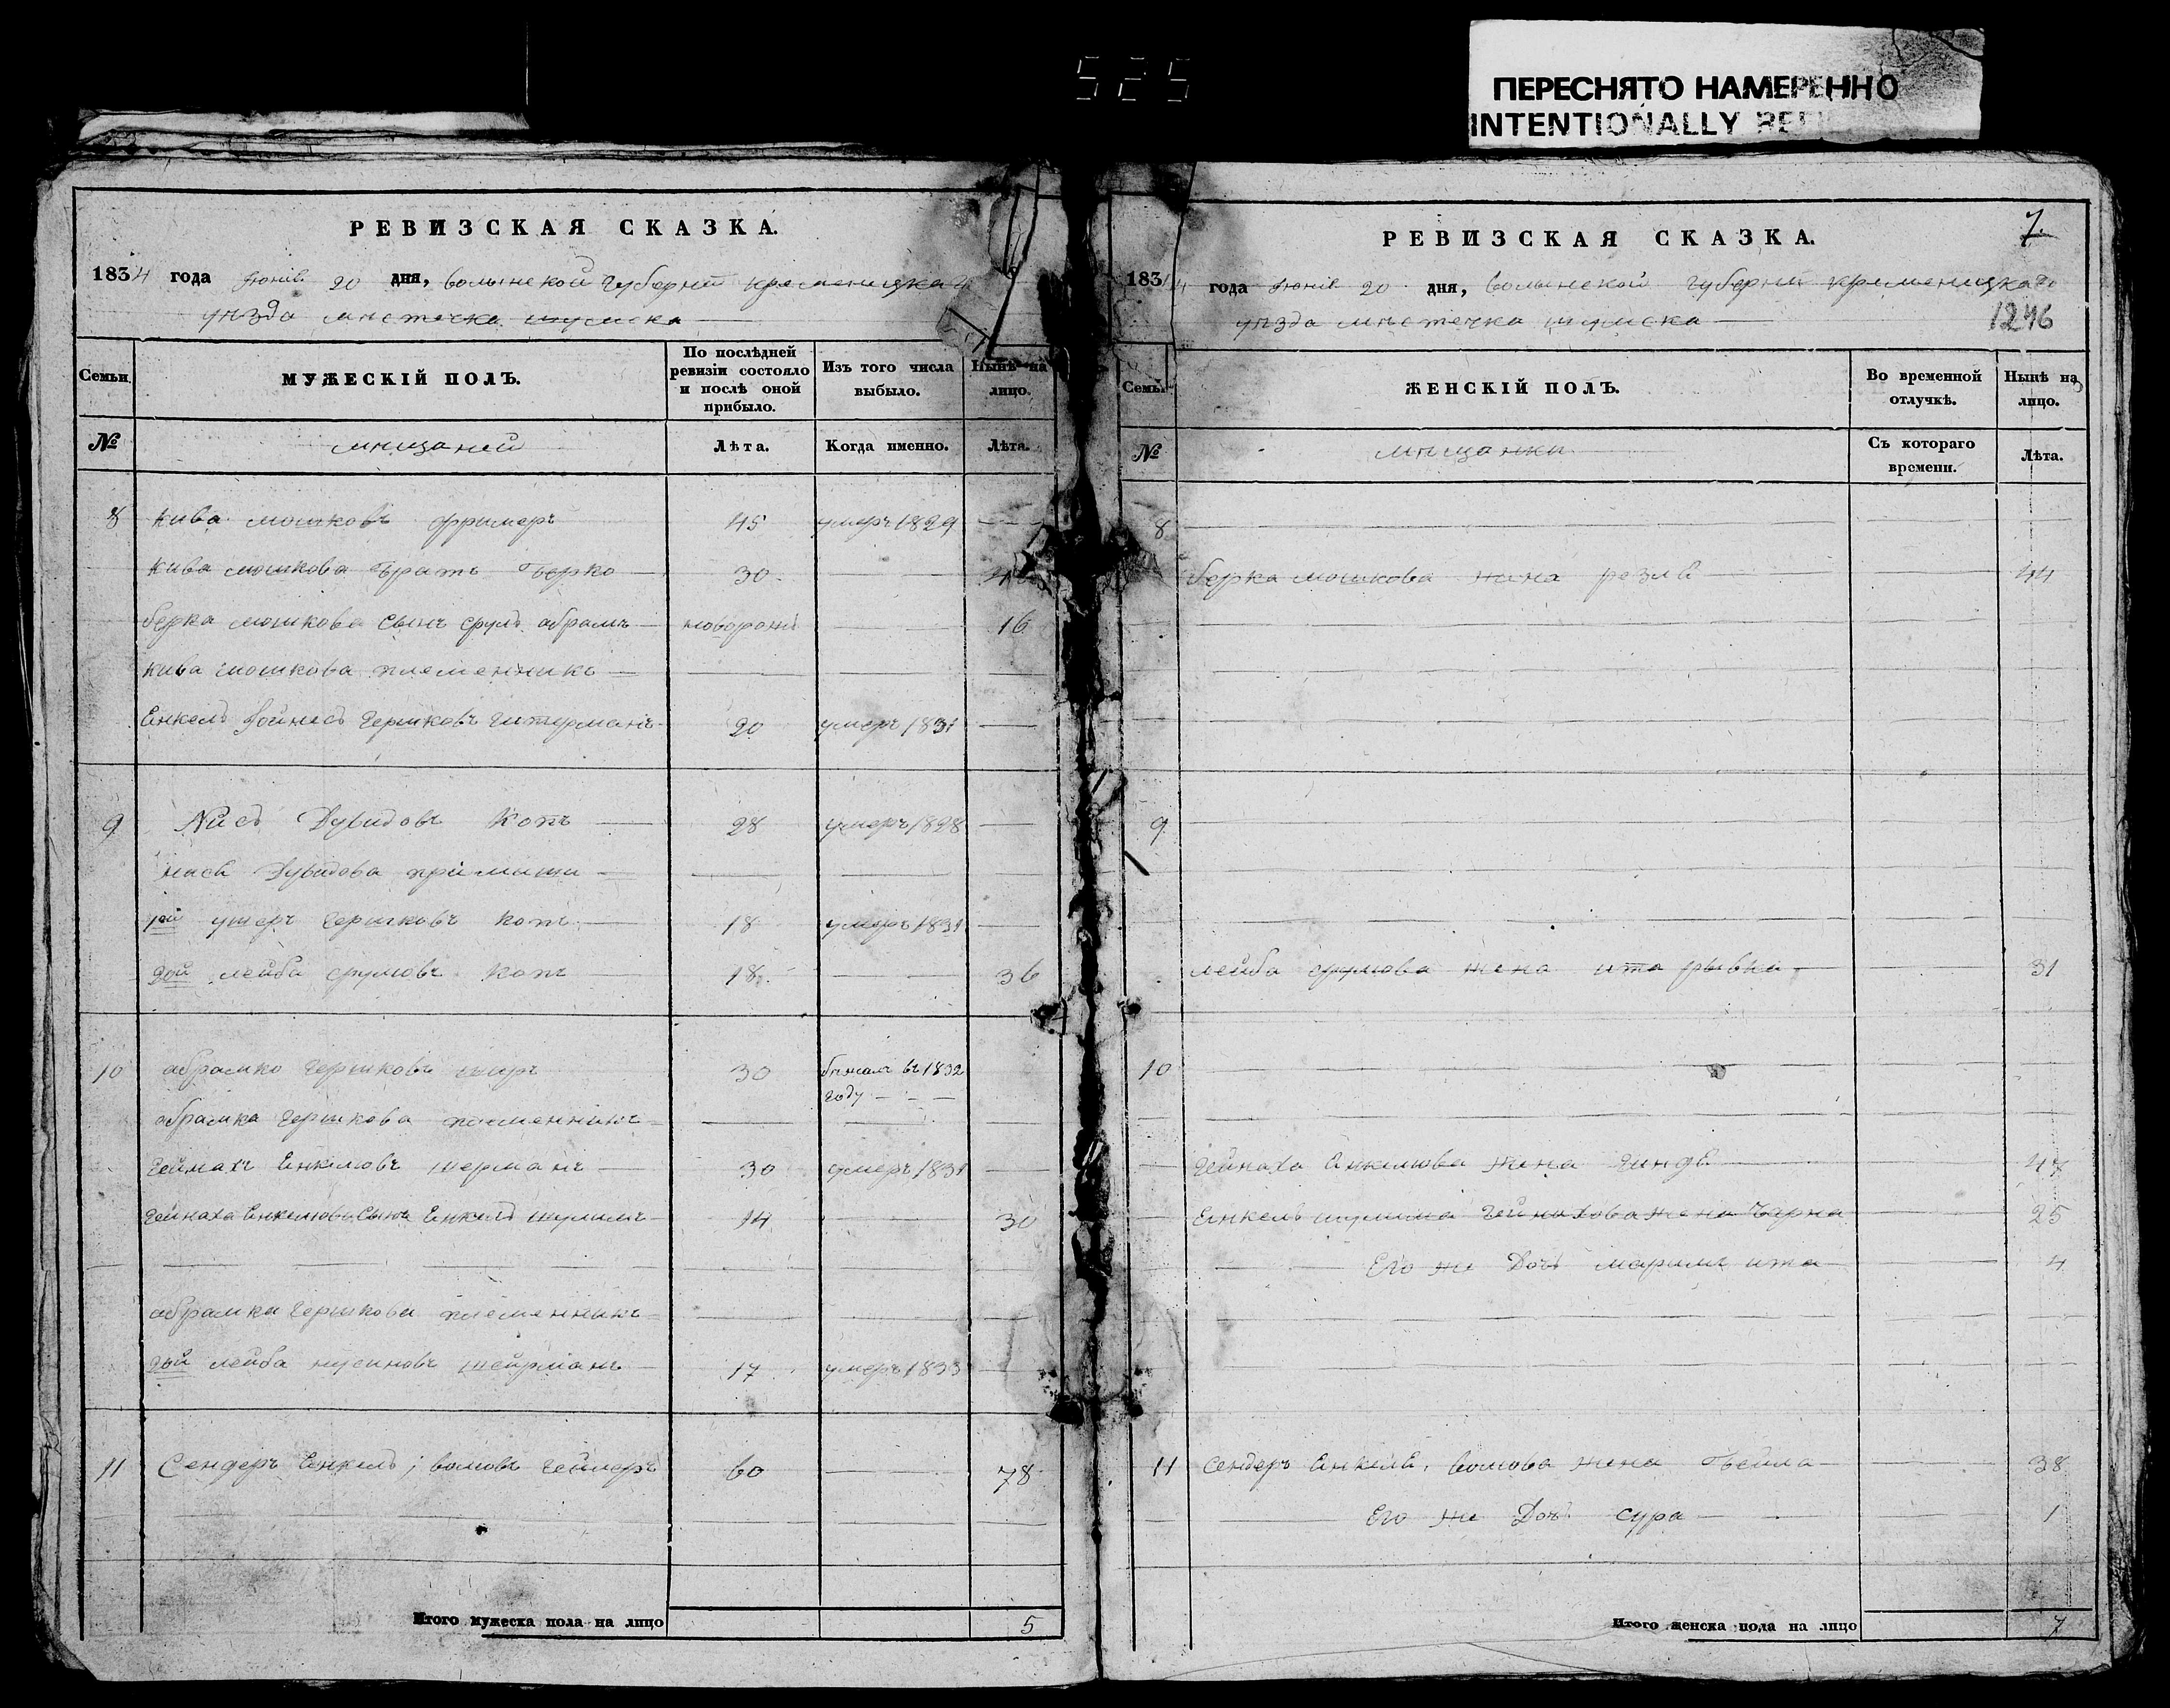 525
ПЕРЕСНЯТО НАМЕРЕННО
INTENTIONALLY
РЕВИЗСКАЯ СКАЗКА.
1834 года Июнiя 20 дня, волынской губернiи кременицкаго
уѣзда мѣстечка шумска
Семьи. МУЖЕСКІЙ ПОЛЪ. По послѣдней ревизіи состояло и послѣ оной прибыло. Изъ того числа выбыло. Нынѣ на лицо.
№ мѣщаней Лѣта. Когда именно. Лѣта.
8 Кива мошковъ фримеръ 45 умеръ 1829
Кива мошкова братъ берко 30
берка мошкова сынъ сруль абрамъ новорожд 16
кива мошкова племенникъ
Енкель гершковъ 20 умеръ 1831
9 Нись Дувидовъ Котъ 28 умеръ 1828
нися Дувидова
1ой ушеръ гершковъ котъ 18 умеръ 1831
2ой лейба срулювъ котъ 18 36
10 абрамко гершковъ 30 бѣжалъ въ 1832
году
абрамка гершкова племенникъ
гейнахъ Енкелювъ шерманъ 30 умеръ 1831
гейнаха Енкелюва сынъ Енкель шулимъ 14 30
абрамка гершкова племенникъ
2ой лейба нусиновъ шейрманъ 17 умеръ 1833
11 Сендеръ Енкель; волювъ геймеръ 60 78
Итого мужеска пола на лицо 5
7.
РЕВИЗСКАЯ СКАЗКА.
1834 года Июнiя 20 дня, волынской губернiи кременицкаго
уѣзда мѣстечка шумска
1246
Семьи. ЖЕНСКІЙ ПОЛЪ. Во временной отлучкѣ. Нынѣ на лицо.
№ мѣщанки Съ котораго времени. Лѣта.
8
берка мошкова жена резля 44
9
лейба срулюва жена ита рывка 31
10
гейнаха Енкелюва жена гиндя 47
Енкель шулима гейнахова жена Чарна 25
Его же Дочь марими ита 4
11 Сендеръ Енкеля, волюва жена бейла 38
Его же Дочь сура 1
Итого женска пола на лицо 7